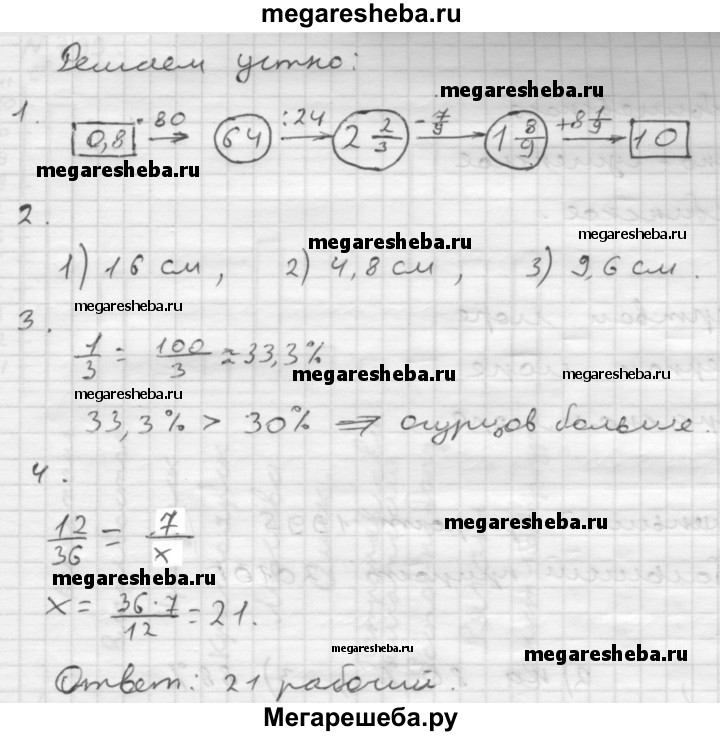 megaresheba.ru
Решаем устно:
megaresheba.ru
1. 0,8 ·80 → 64 :24 → 2 2/3 - 7/9 → 1 8/9 +8 1/9 → 10
megaresheba.ru
2.
megaresheba.ru
megaresheba.ru
1) 16 см, 2) 4,8 см, 3) 9,6 см.
megaresheba.ru
3.
1/3 = 100/3 ≈ 33,3%
megaresheba.ru
megaresheba.ru
megaresheba.ru
33,3% > 30% ⇒ огурцов больше.
4.
megaresheba.ru
12/36 = 7/x
megaresheba.ru
x = 36·7/12 = 21.
megaresheba.ru
megaresheba.ru
Ответ: 21 рабочий.
Мегарешеба.ру